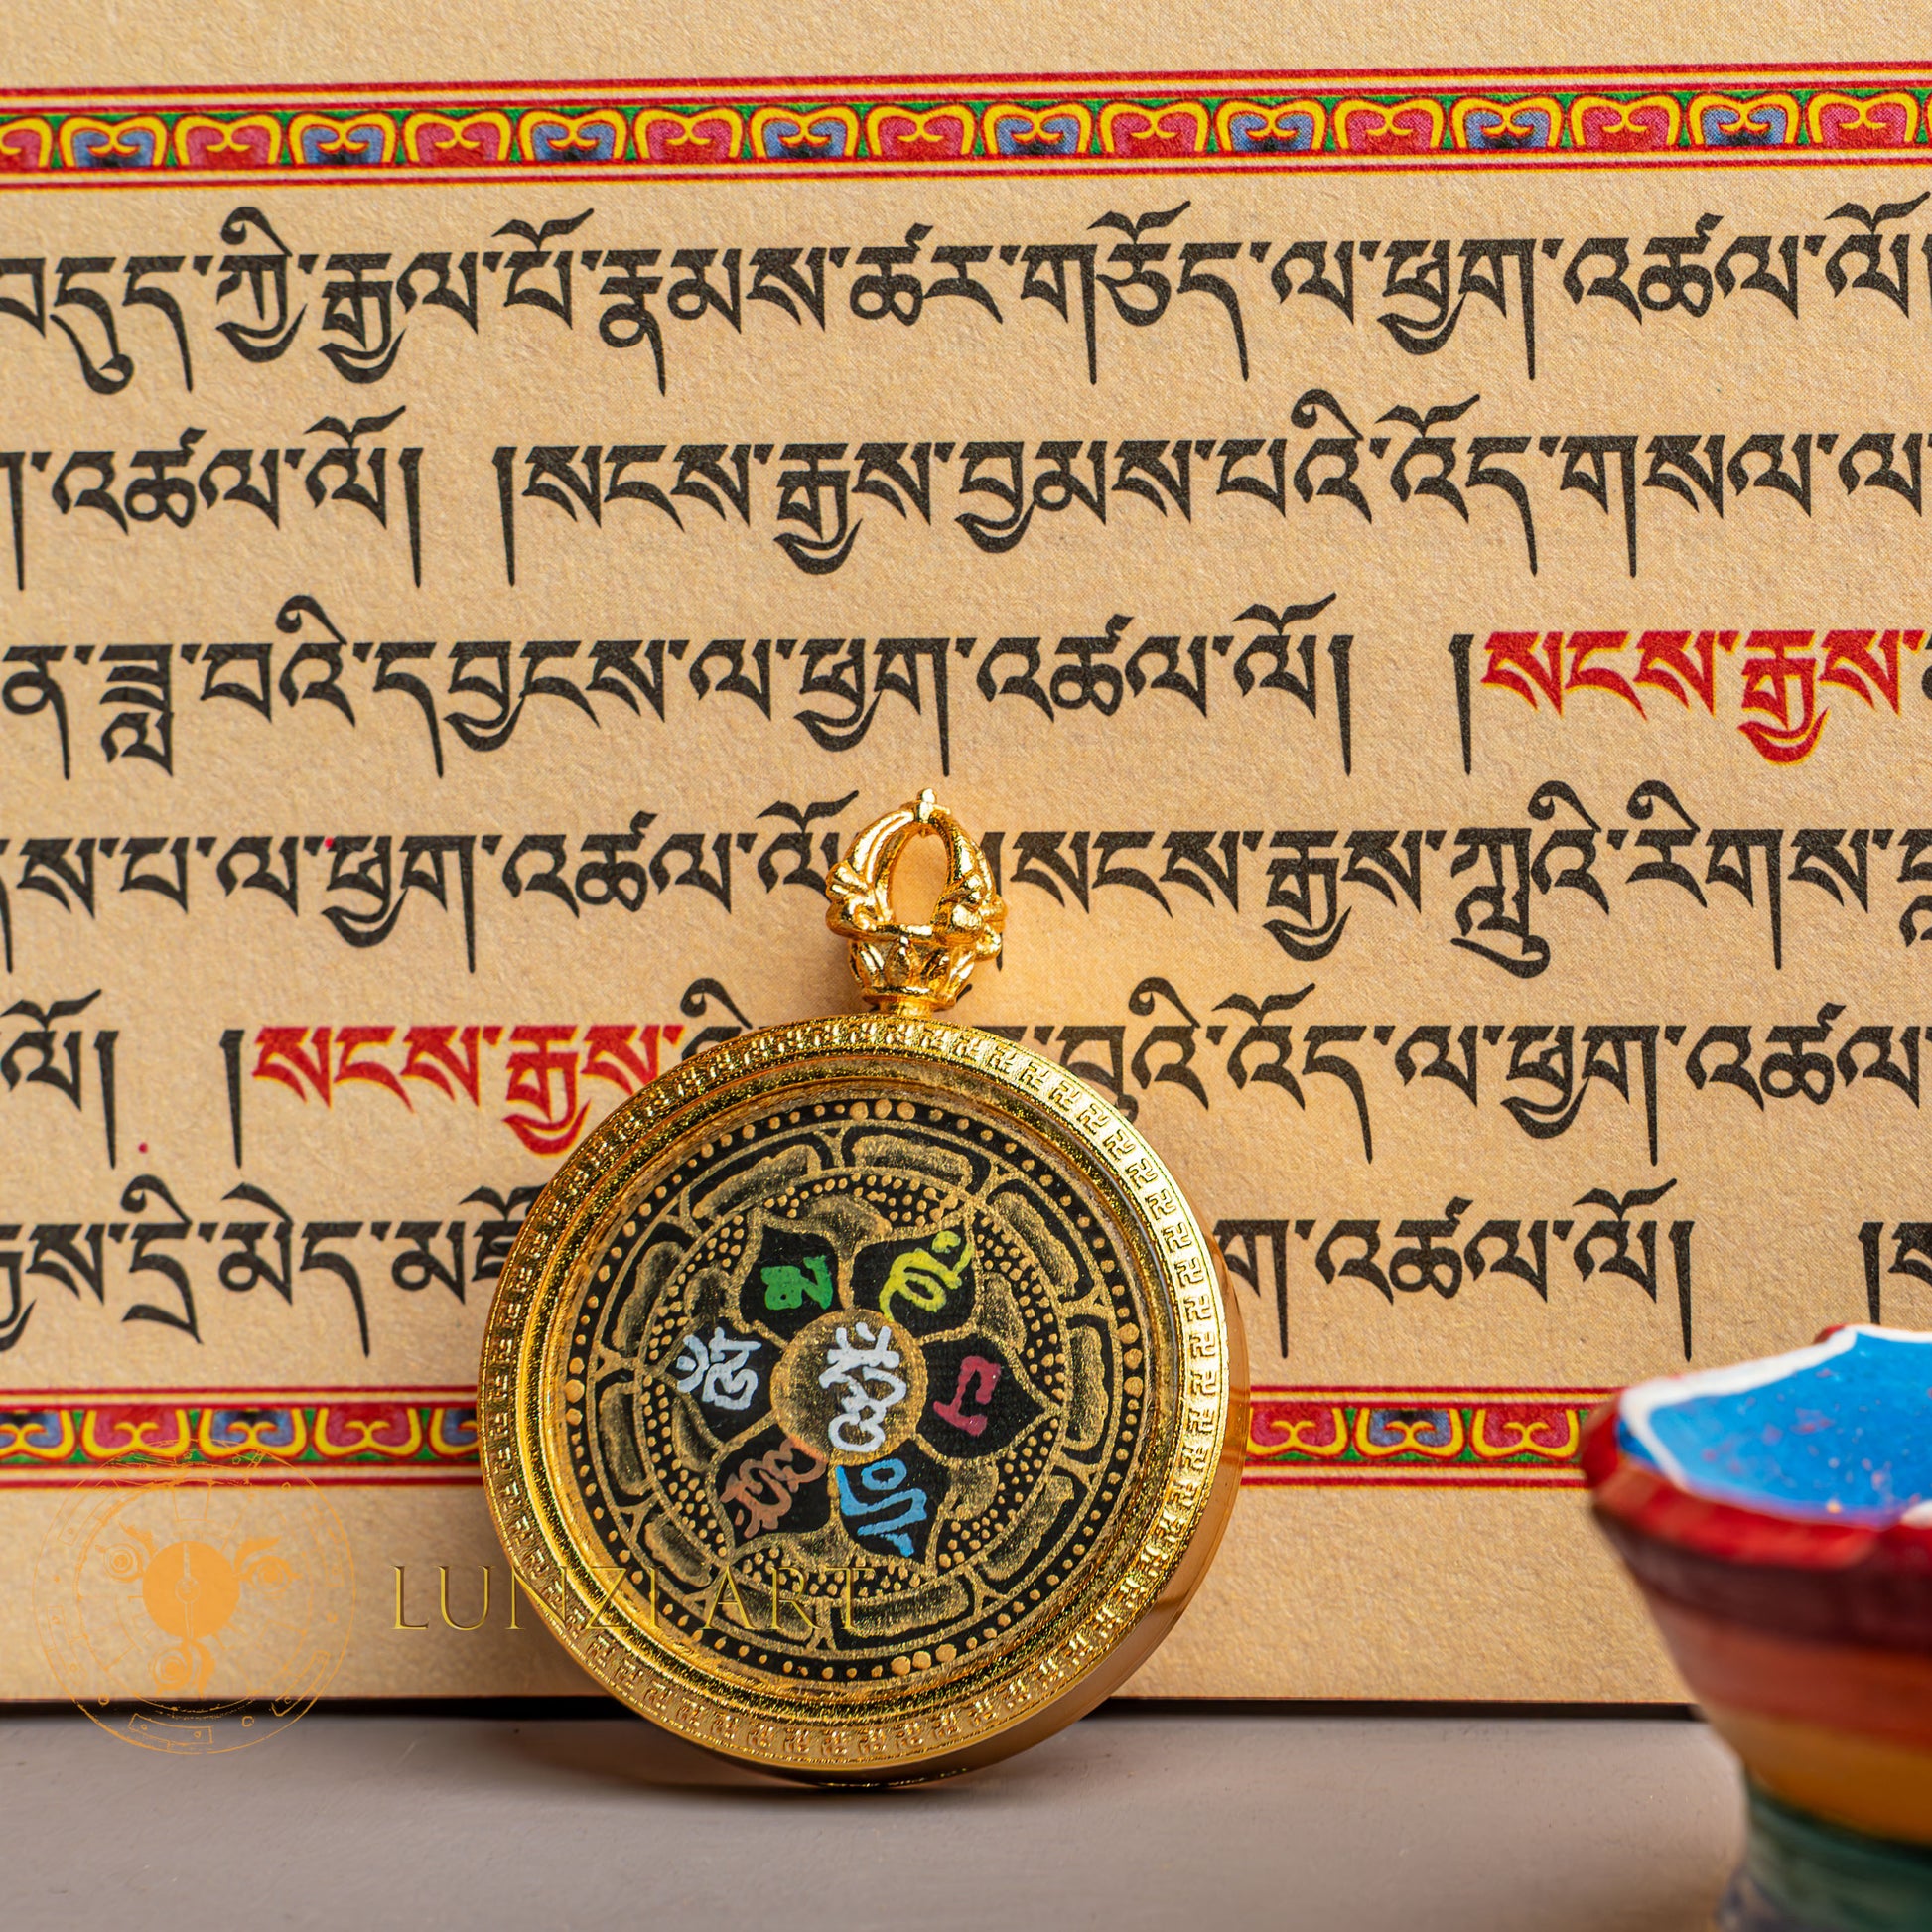 བདུད་ཀྱི་རྒྱལ་པོ་རྣམས་ཚར་གཅོད་ལ་ཕྱག་འཚལ་ལོ
འཚལ་ལོ། །སངས་རྒྱས་བྱམས་པའི་འོད་གསལ་ལ
ན་ཟླ་བའི་དབྱངས་ལ་ཕྱག་འཚལ་ལོ། །སངས་རྒྱས
ས་པ་ལ་ཕྱག་འཚལ་ལོ སངས་རྒྱས་ཀླུའི་རིགས
ལོ། །སངས་རྒྱས བུའི་འོད་ལ་ཕྱག་འཚལ
རྒྱས་དྲི་མེད་མཛོ ག་འཚལ་ལོ། །ས
LUNZI ART